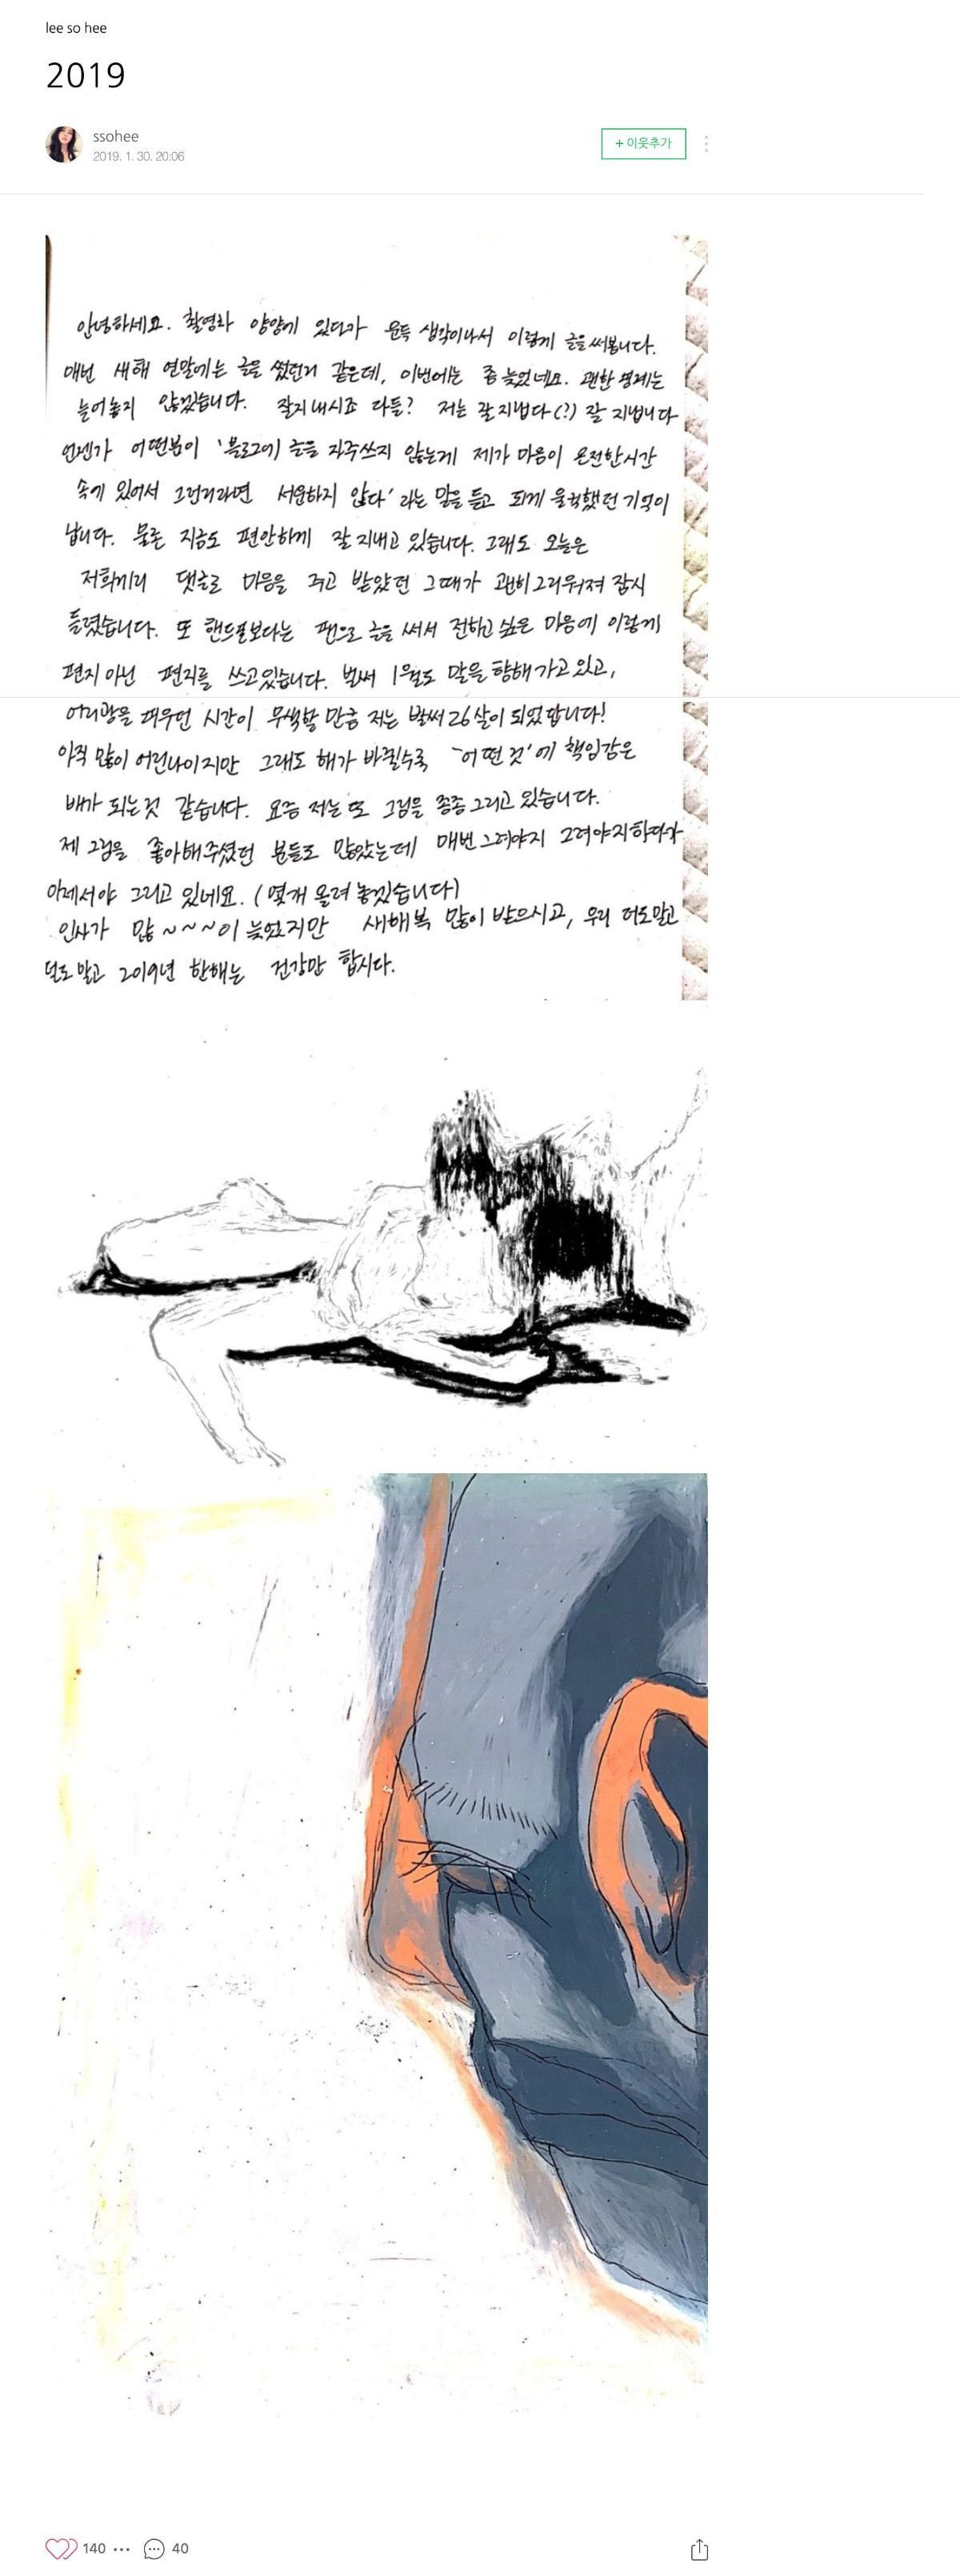 lee so hee
2019
ssohee
2019. 1. 30. 20:06
+ 이웃추가
안녕하세요. 촬영차 양양에 있다가 문득 생각이나서 이렇게 글을써봅니다.
매번 새해 연말에는 글을 썼던거 같은데, 이번에는 좀 늦었네요. 괜한 핑계는
늘어놓지 않겠습니다. 잘지내시죠 다들? 저는 잘지냅다(?) 잘 지냅니다
언젠가 어떤분이 '블로그에 글을 자주쓰지 않는게 제가 마음이 온전한시간
속에 있어서 그런거라면 서운하지 않다' 라는 말을 듣고 되게 울컥했던 기억이
납니다. 물론 지금도 편안하게 잘 지내고 있습니다. 그래도 오늘은
저희끼리 댓글로 마음을 주고 받았던 그때가 괜히그리워져 잠시
들렸습니다. 또 핸드폰보다는 펜으로 글을 써서 전하고 싶은 마음에 이렇게
편지 아닌 편지를 쓰고있습니다. 벌써 1월도 말을 향해가고있고,
어리광을 피우던 시간이 무색할 만큼 저는 벌써 26살이 되었답니다!
아직 많이 어린나이지만 그래도 해가 바뀔수록 '어떤 것'에 책임감은
배가 되는것 같습니다. 요즘 저는 또 그림을 종종 그리고 있습니다.
제 그림을 좋아해주셨던 분들도 많았는데 매번 그려야지 그려야지하다가
이제서야 그리고 있네요. (몇개 올려 놓겠습니다)
인사가 많~~~이 늦었지만 새해복 많이 받으시고, 우리 더도말고
덜도 말고 2019년 한해는 건강만 합시다.
140 40